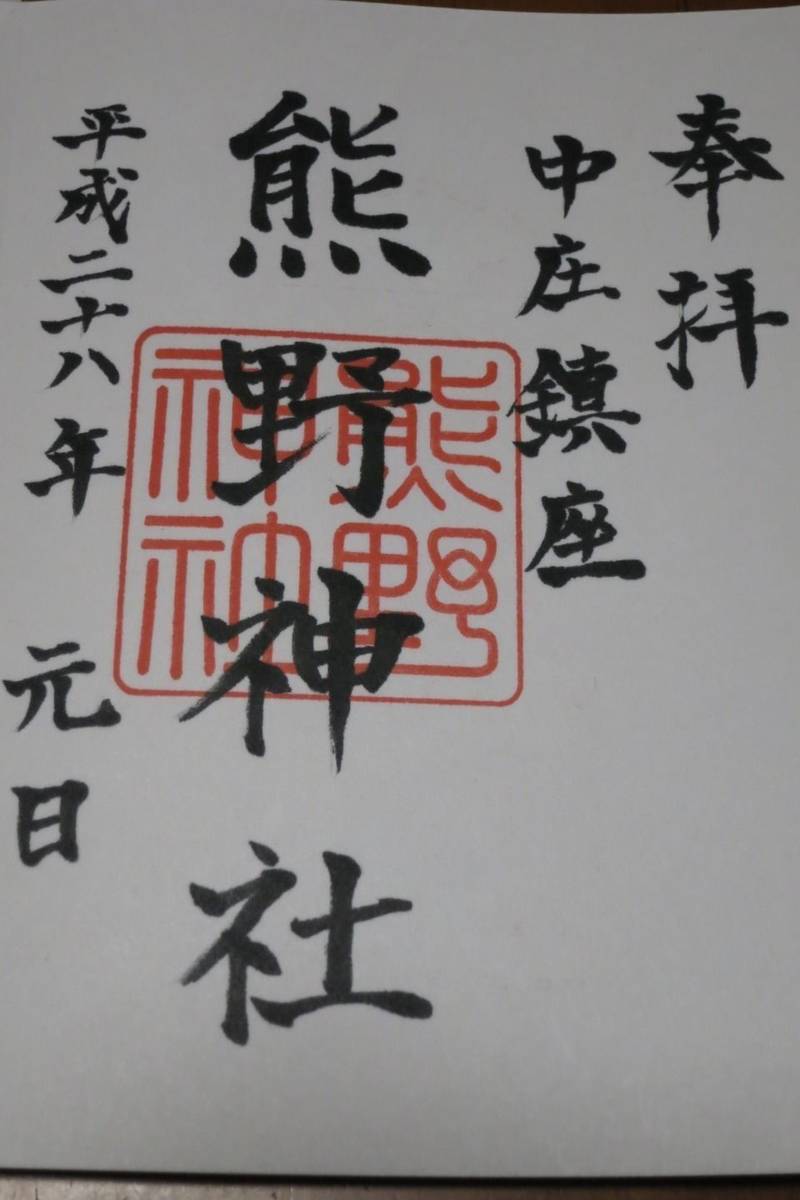 奉拝
中庄鎮座
熊野神社
熊野
神社
平成二十八年 元日